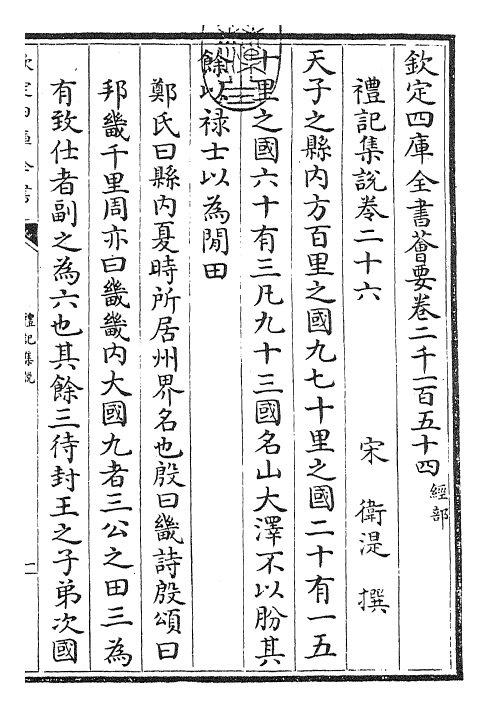 欽定四庫全書薈要卷二千一百五十四 經部
禮記集説卷二十六
宋 衛湜 撰
天子之縣内方百里之國九七十里之國二十有一五
十里之國六十有三凡九十三國名山大澤不以朌其
餘以禄士以為閒田
鄭氏曰縣内夏時所居州界名也殷曰畿詩殷頌曰
邦畿千里周亦曰畿畿内大國九者三公之田三為
有致仕者副之為六也其餘三待封王之子弟次國
禮記集説
一